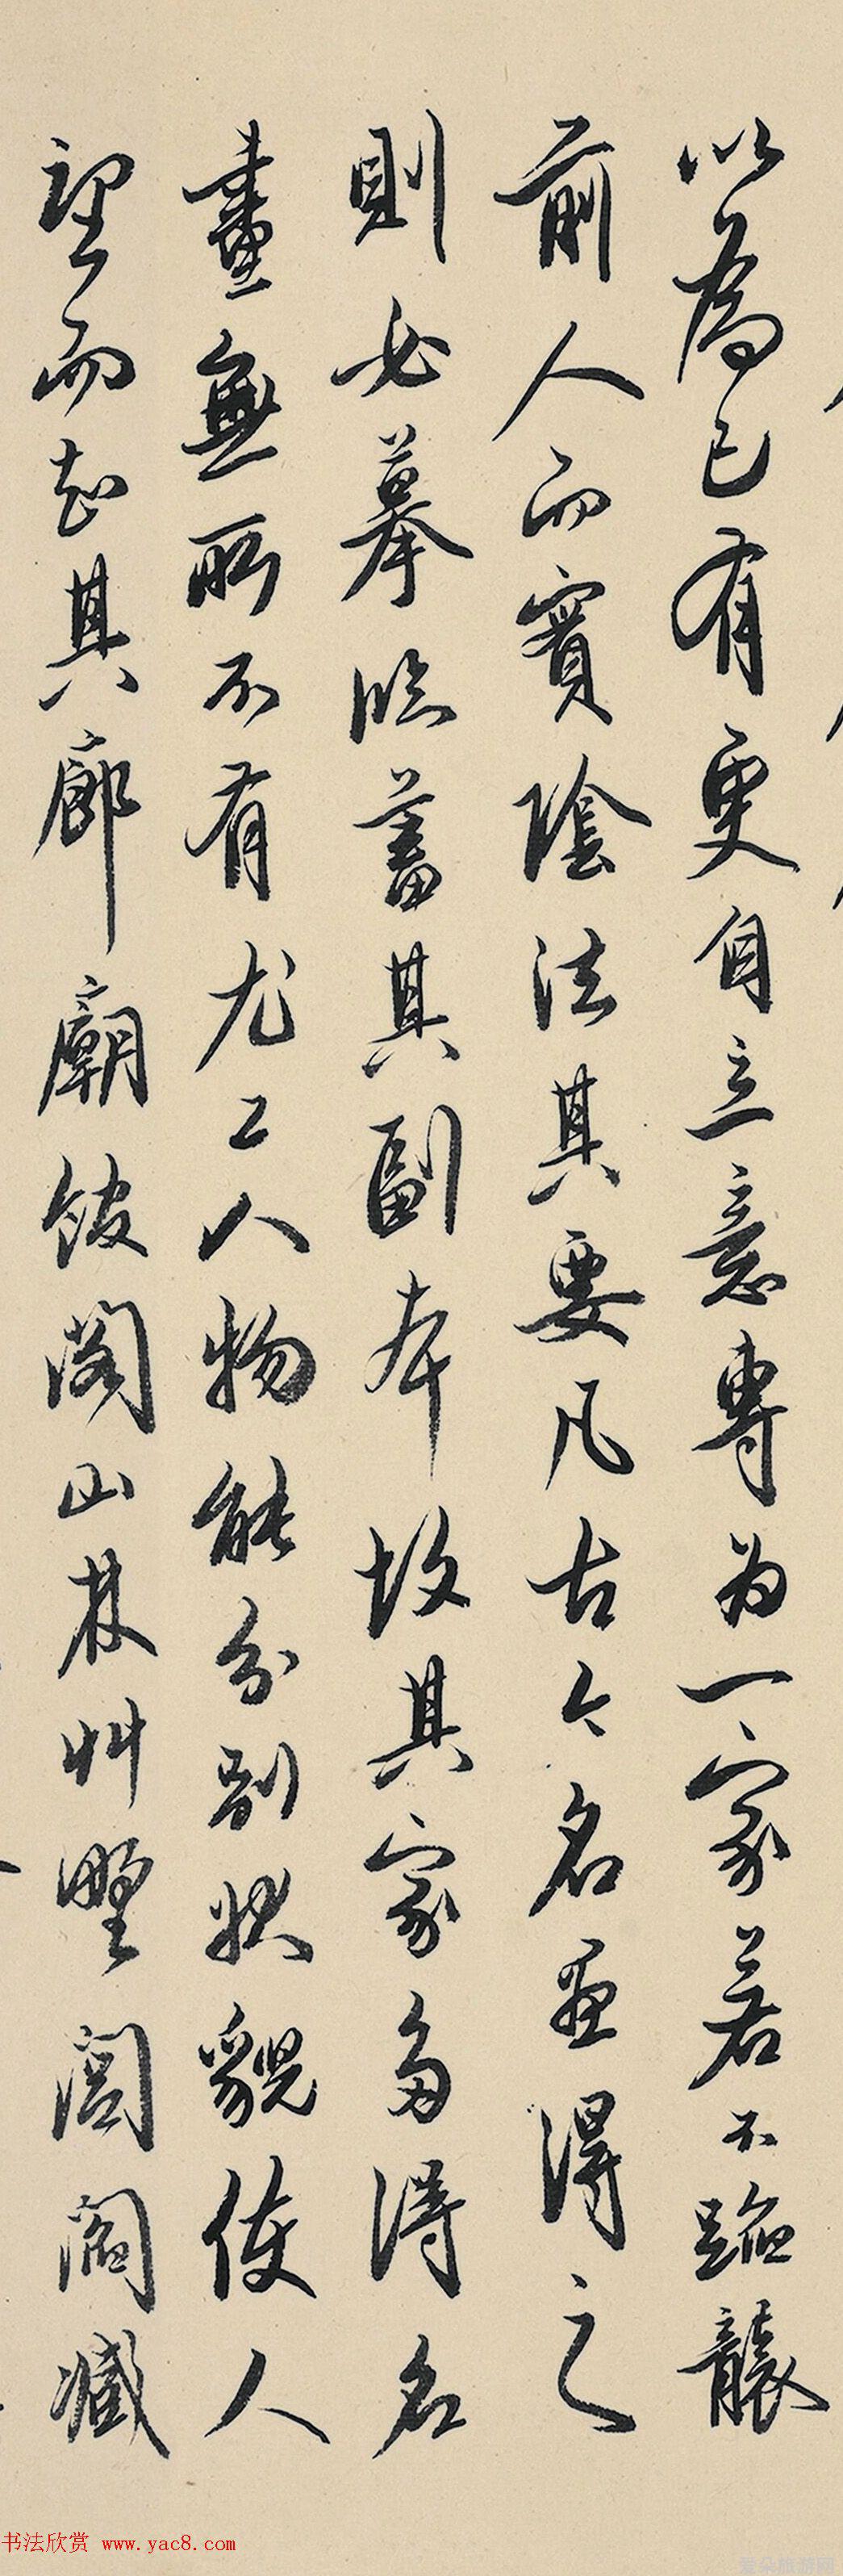 以為己有更自立意專為一家若不蹈襲
前人而實陰法其要凡古今名畫得之
則必摹臨蓄其副本故其家多得名
畫無所不有尤工人物能分別狀貌使人
望而知其廊廟館閣山林艸野閭閻臧
书法欣赏 www.yac8.com